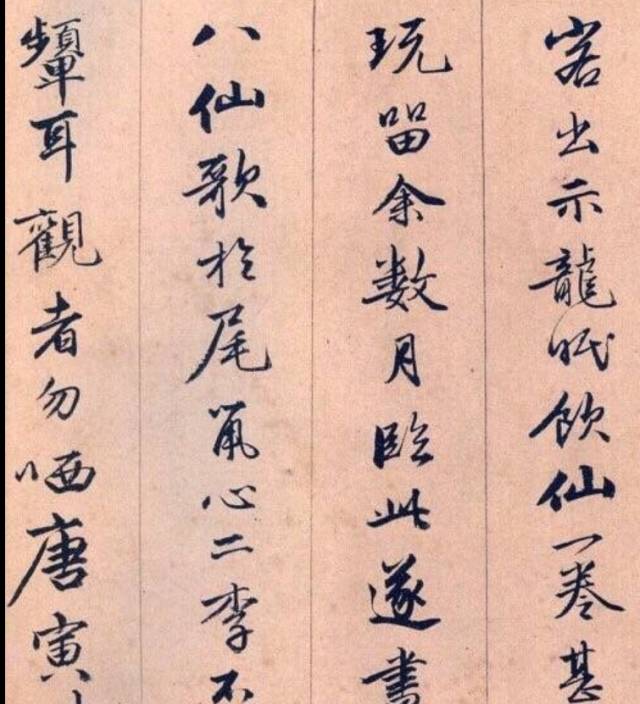 客出示龍眠飲仙一卷甚
玩留余数月臨此遂書
八仙歌於尾鼠心二李不
顰耳觀者勿哂唐寅